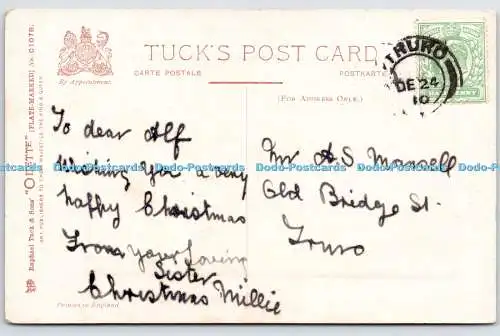 TUCK'S POST CARD
CARTE POSTALE
POSTKARTE
By Appointment.
(FOR ADDRESS ONLY.)
Raphael Tuck & Sons' "OILETTE" [PLATE-MARKED] No. C1076.
ART PUBLISHERS TO THEIR MAJESTIES THE KING & QUEEN
TRURO
DE 24
10
To dear Alf
Wishing you a very
happy Christmas
From your loving
Sister
Christmas Millie
Mr A S Maxwell
Old Bridge St.
Truro
Printed in England
Dodo-Postcards Dodo-Postcards Dodo-Postcards Dodo-Postcards Dodo-Postcards